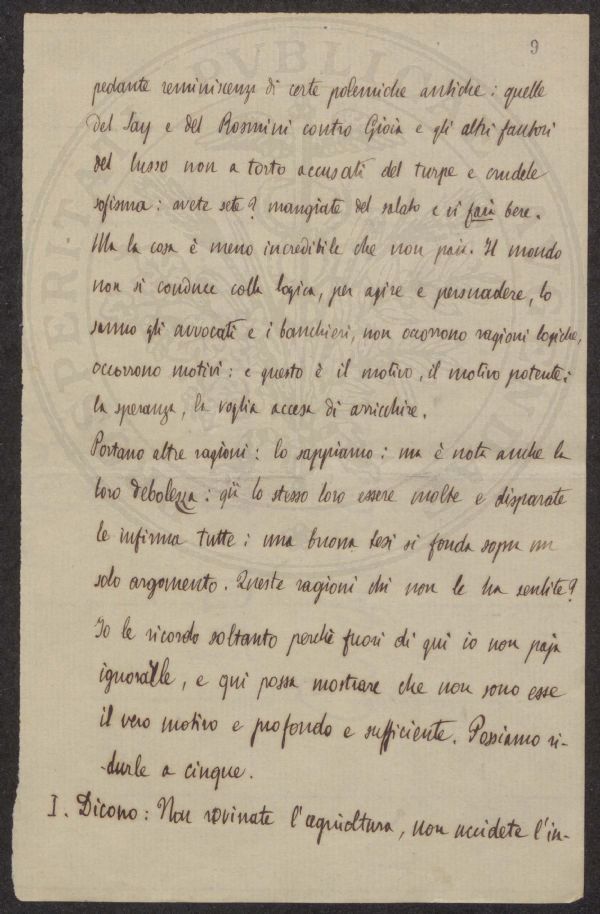 9
pedante reminiscenza di certe polemiche antiche: quelle
del Say e del Rosmini contro Gioia e gli altri fautori
del lusso non a torto accusati del turpe e crudele
sofisma: avete sete? mangiate del salato e vi farà bere.
Ma la cosa è meno incredibile che non paia. Il mondo
non si conduce colla logica, per agire e persuadere, lo
sanno gli avvocati e i banchieri, non occorrono ragioni logiche,
occorrono motivi: e questo è il motivo, il motivo potente:
la speranza, la voglia accesa di arricchire.
Portano altre ragioni: lo sappiamo: ma è nota anche la
loro debolezza: già lo stesso loro essere molte e disparate
le infirma tutte: una buona tesi si fonda sopra un
solo argomento. Queste ragioni chi non le ha sentite?
Io le ricordo soltanto perchè fuori di qui io non paja
ignorarle, e qui possa mostrare che non sono esse
il vero motivo e profondo e sufficiente. Possiamo ri-
-durle a cinque.
I. Dicono: Non rovinate l'agricoltura, non uccidete l'in-